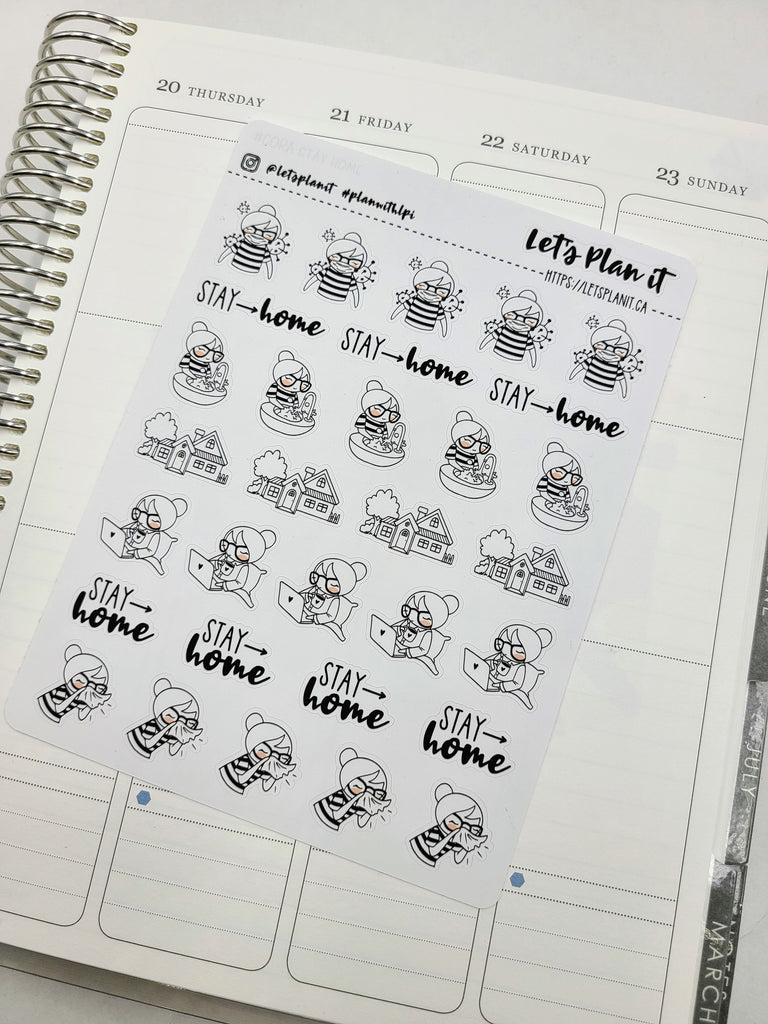 20 THURSDAY
21 FRIDAY
22 SATURDAY
23 SUNDAY
#CORA STAY HOME
@letsplanit #planwithlpi
Let's Plan it
HTTPS://LETSPLANIT.CA
STAY→home
STAY→home
STAY→home
STAY→
home
STAY→
home
STAY→
home
STAY→
home
JULY
MARCH